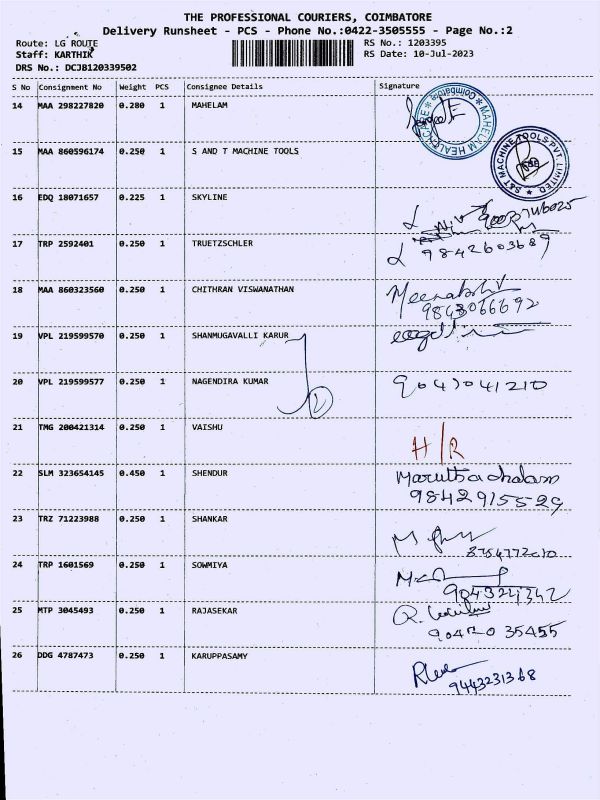 THE PROFESSIONAL COURIERS, COIMBATORE
Delivery Runsheet - PCS - Phone No.:0422-3505555 - Page No.:2
Route: LG ROUTE RS No.: 1203395
Staff: KARTHIK RS Date: 10-Jul-2023
DRS No.: DCJB120339502
S No Consignment No Weight PCS Consignee Details Signature
14 MAA 298227820 0.280 1 MAHELAM
MAHELAM HEALTHCARE * Coimbatore *
15 MAA 860596174 0.250 1 S AND T MACHINE TOOLS
S&T MACHINE TOOLS PVT. LIMITED
16 EDQ 18071657 0.225 1 SKYLINE
17 TRP 2592401 0.250 1 TRUETZSCHLER
9842603689
18 MAA 860323560 0.250 1 CHITHRAN VISWANATHAN Meenakshi V
9843066692
19 VPL 219599570 0.250 1 SHANMUGAVALLI KARUR
20 VPL 219599577 0.250 1 NAGENDIRA KUMAR 9047041210
2
21 TMG 200421314 0.250 1 VAISHU H/R
22 SLM 323654145 0.450 1 SHENDUR Maruthachalam
9842915529
23 TRZ 71223988 0.250 1 SHANKAR
24 TRP 1601569 0.250 1 SOWMIYA
25 MTP 3045493 0.250 1 RAJASEKAR
35455
26 DDG 4787473 0.250 1 KARUPPASAMY
9443231368